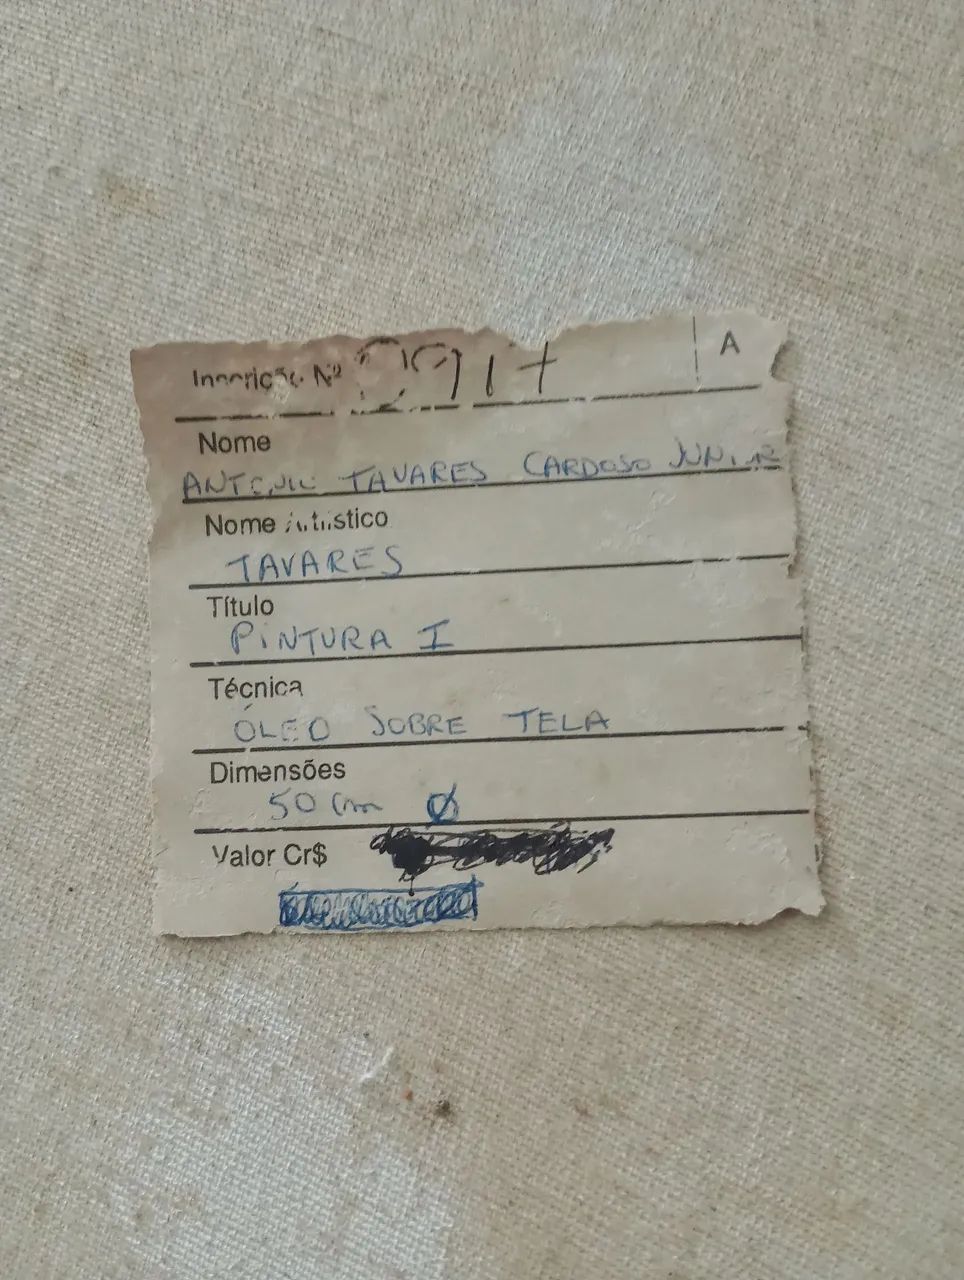 Inscrição Nº A
Nome
ANTONIO TAVARES CARDOSO JUNIOR
Nome Artístico
TAVARES
Título
PINTURA I
Técnica
ÓLEO SOBRE TELA
Dimensões
50 cm Ø
Valor Cr$